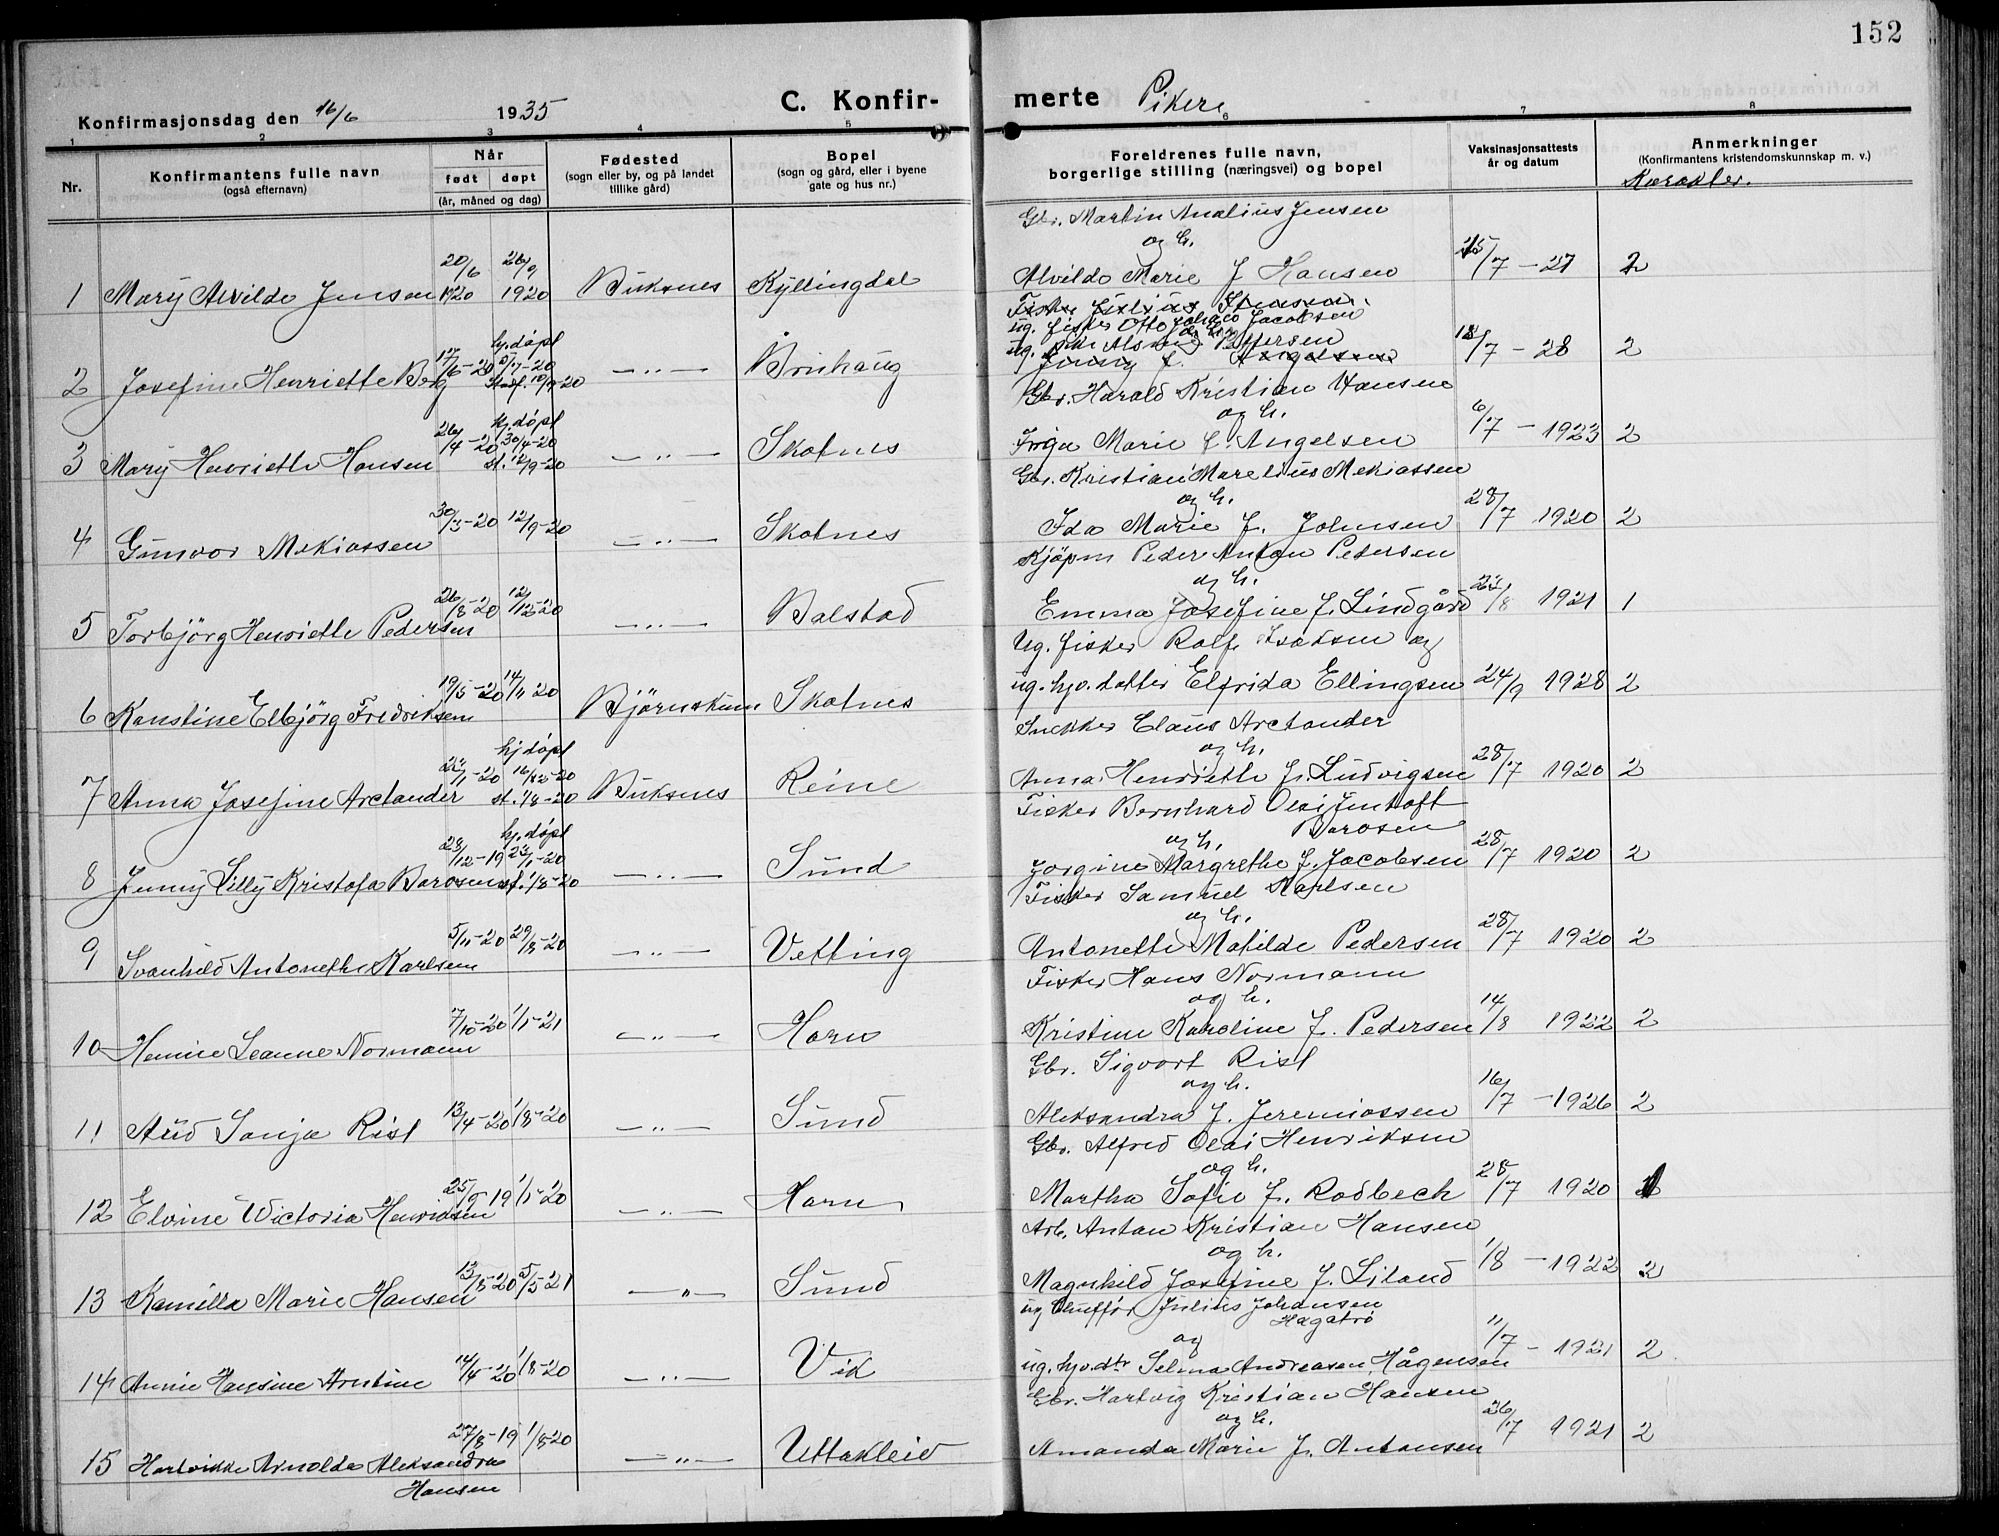 152
Konfirmasjonsdag den 16/6 1935 C. Konfir- merte Piker
1 2 3 4 5 6 7 8
Nr. Konfirmantens fulle navn (også efternavn) Når født døpt (år, måned og dag) Fødested (sogn eller by, og på landet tillike gård) Bopel (sogn og gård, eller i byene gate og hus nr.) Foreldrenes fulle navn, borgerlige stilling (næringsvei) og bopel Vaksinasjonsattests år og datum Anmerkninger (Konfirmantens kristendomskunnskap m. v.) Karakter.
Gbr. Martin Analius Jensen
og h.
1 Mary Alvilde Jensen 20/6 1920 26/9 1920 Buksnes Kyllingdal Alvilde Marie f. Hansen 25/7 - 27 2
ug. fisker Otto Johan Jacobsen
og
2 Josefine Henriette Berg 17/6-20 hj. døpt 5/7-20 Stadf. 19/9-20 -„- Brinhaug ug. Pettersen 18/7 - 28 2
Gbr. Harald Kristian Hansen
og h.
3 Mary Henriette Hansen 26/4-20 hj. døpt 30/4-20 st. 12/9-20 -„- Skotnes Inga Marie f. Angelsen 6/7 - 1923 2
Gbr. Kristian Marelius Mekiassen
og h.
4 Gunvor Mekiassen 30/3-20 12/9-20 -„- Skotnes Ida Marie f. Johnsen 28/7 1920 2
Kjøpm Peder Anton Pedersen
og h.
5 Torbjörg Henriette Pedersen 26/8-20 12/12-20 -„- Balstad Emma Josefine f. Lindgård 22/8 1921 1
Ug. fisker Rolf Isaksen og
6 Konstine Elbjörg Fredriksen 19/5-20 14/11 20 Björnskinn Skotnes ug. hjv. datter Elfrida Ellingsen 24/9 1928 2
Snekker Claus Arctander
og h.
7 Anna Josefine Arctander 22/11-20 hj døpt 16/12-20 st. 1/8-20 Buksnes Reine Anna Henriette f. Ludvigsen 28/7 1920 2
Fisker Bernhard Olai Jentoft
og h. Barosen
8 Jenny Lilly Kristofa Barosen 28/12-19 hj. døpt 22/1-20 st. 1/8-20 -„- Sund Jorgine Margrethe f. Jacobsen 28/7 1920 2
Fisker Samuel Karlsen
og h.
9 Svanhild Antonethe Karlsen 5/11-20 29/8-20 -„- Vetting Antonette Matilde Pedersen 28/7 1920 2
Fisker Hans Normann
og h.
10 Hennie Leanne Normann 7/10-20 1/1-21 -„- Horn Kristine Karoline f. Pedersen 14/8 1922 2
Gbr. Sigvart Rist
og h.
11 Aud Sonja Rist 13/4-20 1/8-20 -„- Sund Aleksandra f. Jeremiassen 16/7 - 1926 2
Gbr. Alfred Olai Henriksen
og h.
12 Elvine Victoria Henriksen 25/9-19 1/1-20 -„- Horn Martha Sofie f. Rodbech 28/7 1920 1
Arb. Anton Kristian Hansen
og h.
13 Kamilla Marie Hansen 13/8-20 5/5-21 -„- Sund Magnhild Josefine f. Liland 1/8 - 1922 2
ug Chufför Julius Johansen
Hagatrö
og
14 Annie Hansine Arntine 14/4-20 1/8-20 -„- Vik ug. hjv. dtr Selma Andreasen Hågensen 11/7 - 1921 2
Gbr. Hartvig Kristian Hansen
og h.
15 Hartvikke Arnolda Aleksandra Hansen 27/8-19 1/8-20 -„- Uttakleiv Amanda Marie f. Antonsen 26/7 1921 2